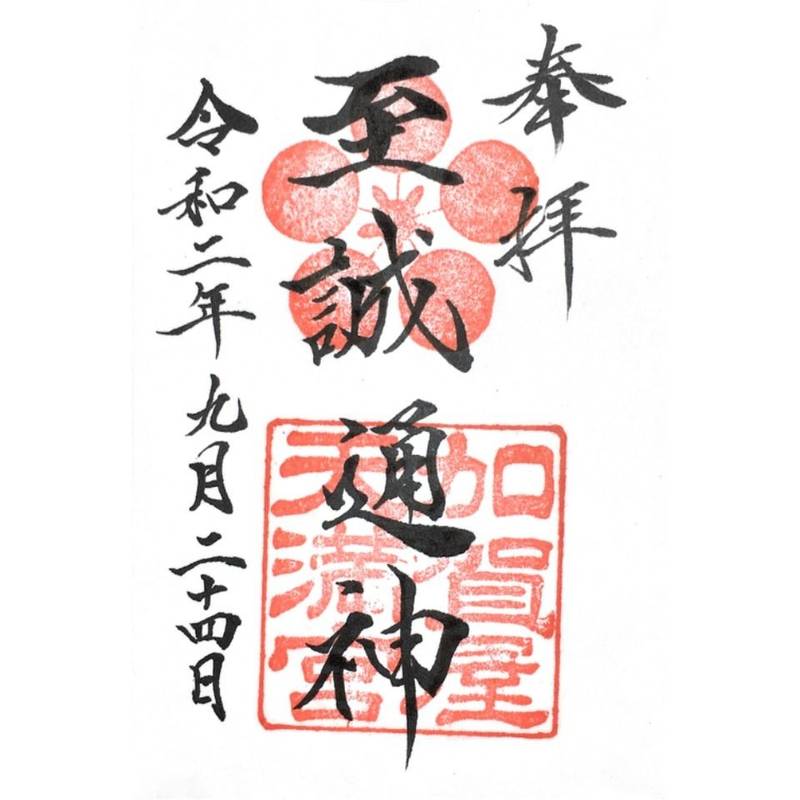 奉拝
至誠通神
加賀屋
天満宮
令和二年九月二十四日